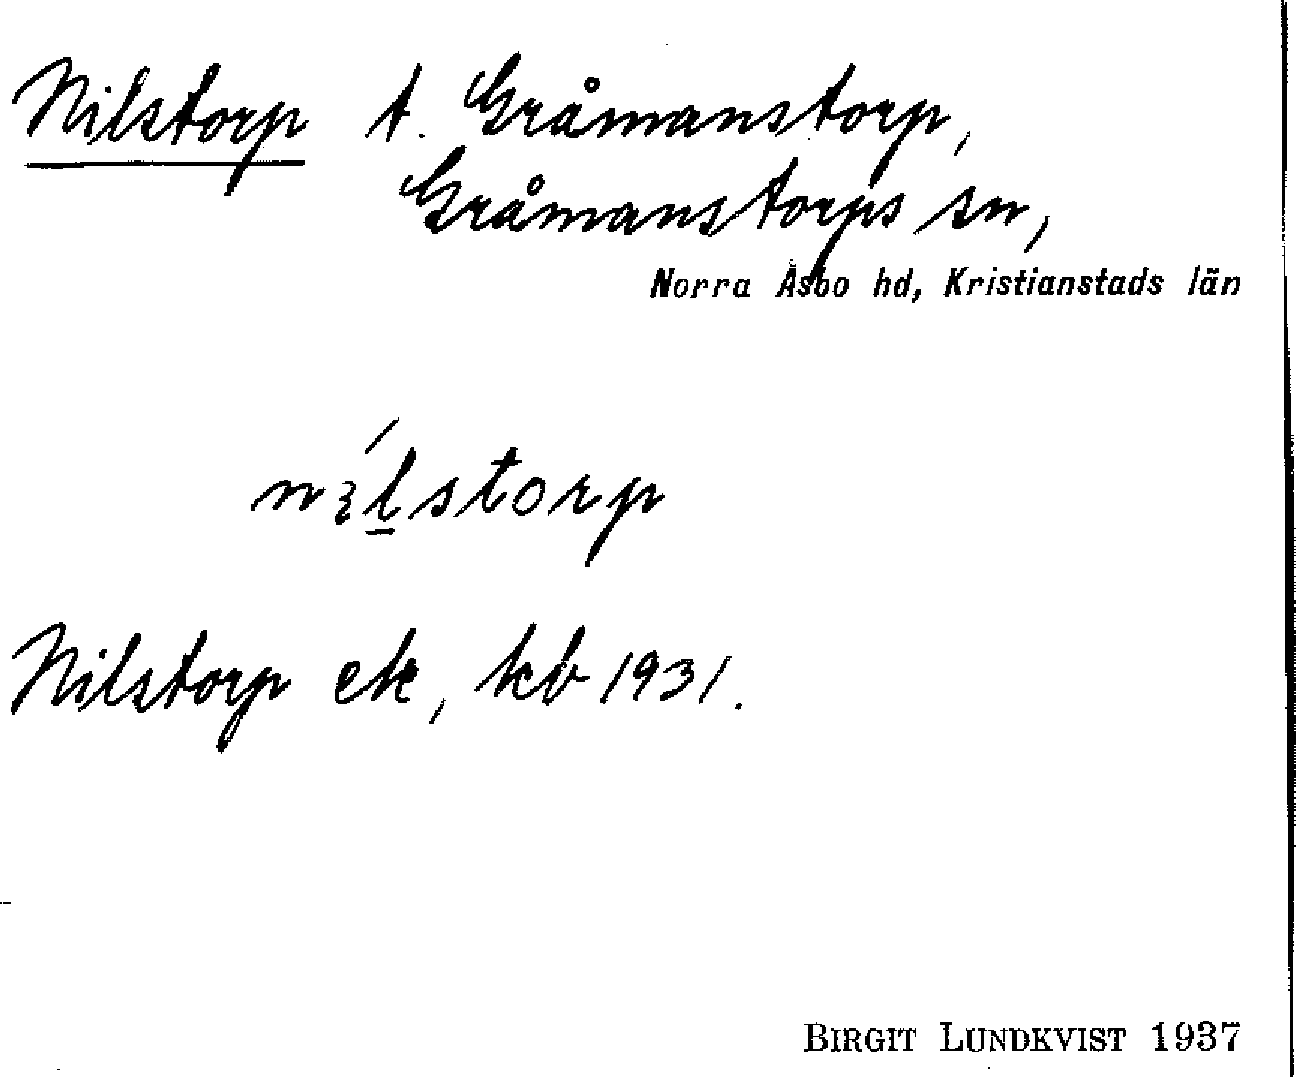 Nilstorp t. Gråmanstorp,
Gråmanstorps sn,
Norra Åsbo hd, Kristianstads län
nılstorp
Nilstorp ek, kb 1931.
BIRGIT LUNDKVIST 1937